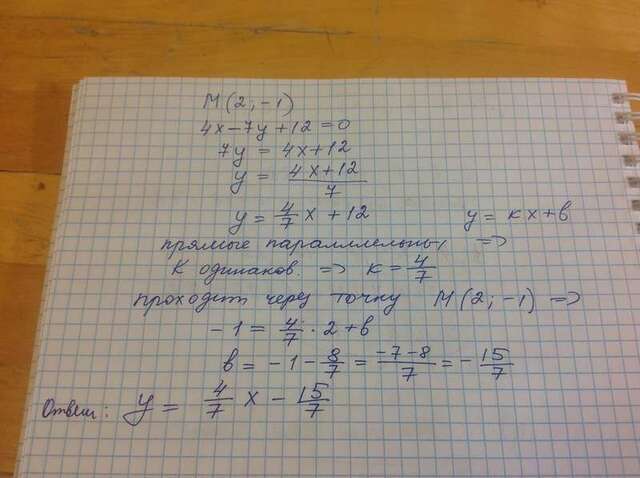 M(2; -1)
4x - 7y + 12 = 0
7y = 4x + 12
y = (4x + 12)/7
y = 4/7 x + 12 y = кx + в
прямые параллельны =>
К одинаков. => к = 4/7
проходит через точку M(2; -1) =>
-1 = 4/7 · 2 + в
в = -1 - 8/7 = (-7-8)/7 = - 15/7
Ответ: y = 4/7 x - 15/7